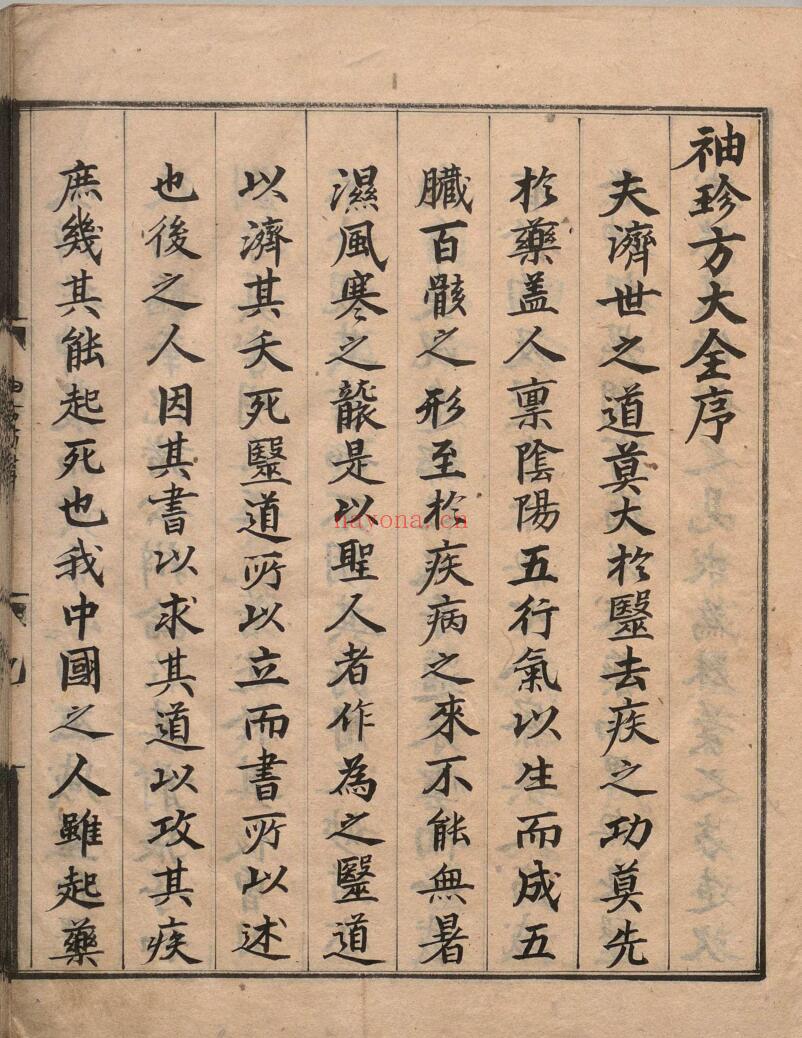 袖珍方大全序
夫濟世之道莫大於毉去疾之功莫先
於藥盖人禀陰陽五行氣以生而成五
臟百骸之形至於疾病之來不能無暑
濕風寒之襲是以聖人者作為之毉道
以濟其夭死毉道所以立而書所以述
也後之人因其書以求其道以攻其疾
庶幾其能起死也我中國之人雖起藥
nayona.cn